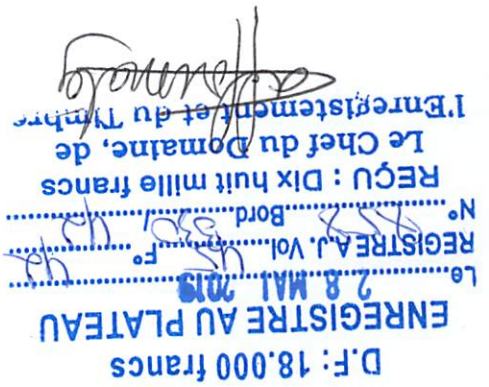 D.F: 18.000 francs
ENREGISTRE AU PLATEAU
Le 28 MAI 2019
REGISTRE A.J. Vol. 45 F° 42
N° Bord. /
REÇU : Dix huit mille francs
Le Chef du Domaine, de
l'Enregistrement et du Timbre